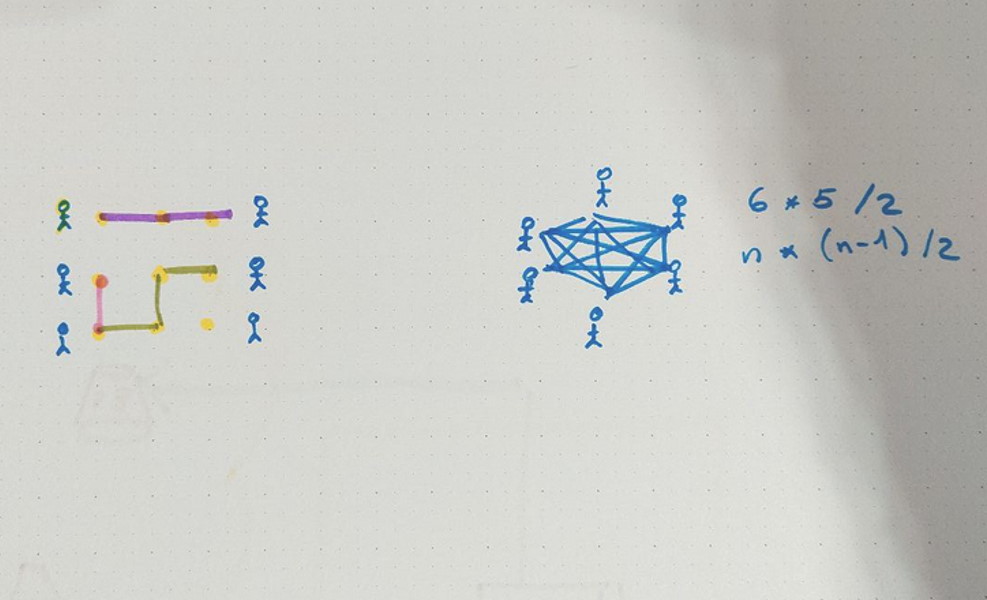 6 * 5 /2
n * (n-1) /2